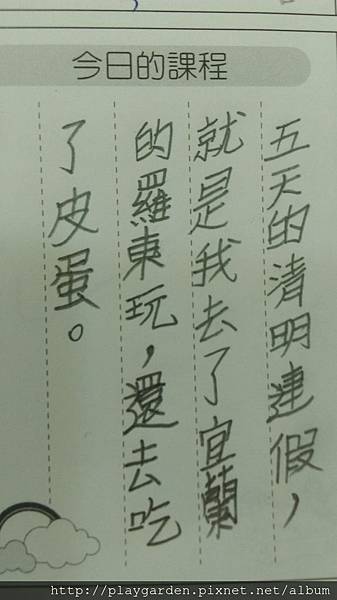 今日的課程
五天的清明連假，
就是我去了宜蘭
的羅東玩，還去吃
了皮蛋。
http://playgarden.pixnet.net/album